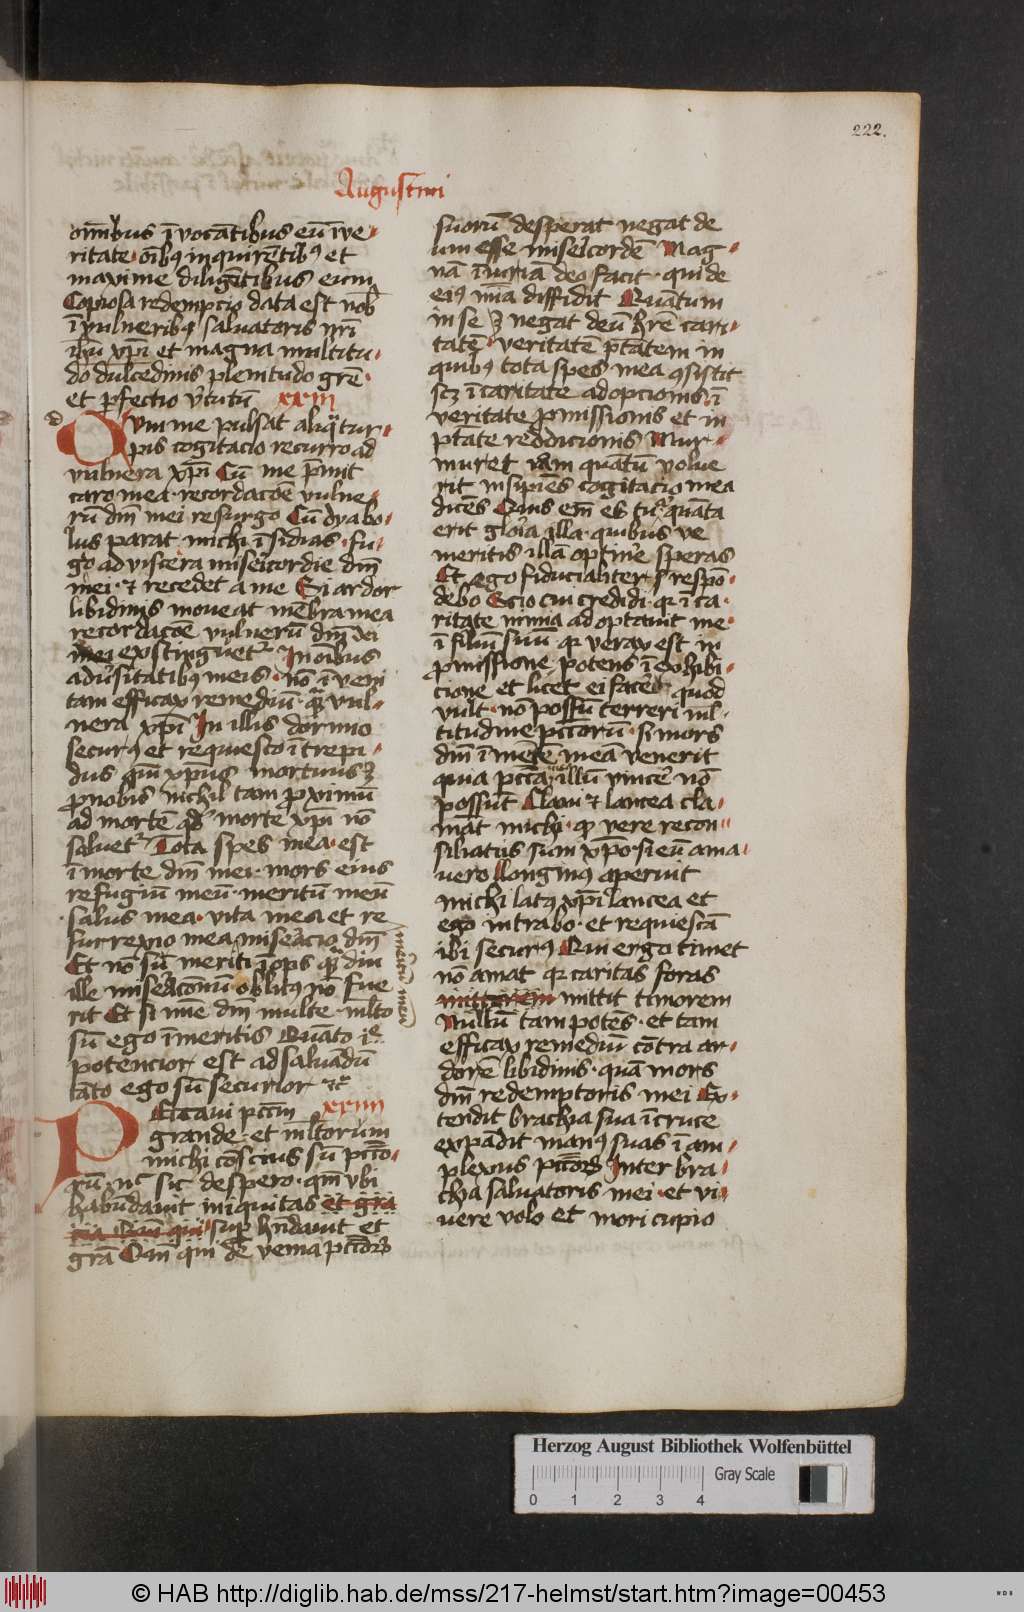 222.
Augustini
om̅ibus i̅vocā̅tibus eu̅ i̅ve-
ritate· oi̅bꝯ inquire̅tibꝯ et
maxime dilige̅tibus eum
Copiosa redempcio data est nob̅
i̅ vulneribꝯ saluatoris nr̅i
ih̅u xp̅i et magna multitu-
do dulcedinis plenitudo gr̅e·
et perfectio v̓tutu̅ xxiii
Qum me pulsat aliq̅ tur-
pis cogitacio recurro ad
vulnera xp̅i Cu̅ me p̅mit
caro mea· recordaco̅e vulne-
ru̅ dn̅i mei resurgo Cu̅ dyabo-
lus parat michi i̅sidias· fu-
go ad viscera misericordie dn̅i
mei· ⁊ recedet a me Si ardor
libidinis moueat me̅bra mea
recordaco̅e vulneru̅ dn̅i dei
mei exstinguet̉ In oi̅bus
adu̓sitatibꝯ meis· no̅ i̅veni
tam efficax remediu̅· q̅ vul-
nera xp̅i In illis dormio
securꝯ et requiesco i̅trepi-
dus qm̅ xp̅us mortuus ꝫ
ꝓ nobis nichil tam ꝓximu̅
ad morte̅ qd̅ morte xp̅i no̅
saluet̉ Tota spes mea· est
i̅ morte dn̅i mei· mors eius
refugiu̅ meu̅· meritu̅ meu̅
salus mea· vita mea et re
surrexio mea miseracio dn̅i
meritu̅ meu̅
Et no̅ su̅ meriti i̅ops q̅ diu
ille miseraconu̅ oblitꝯ no̅ fue
rit Et si mi̅e dn̅i multe· ml̅to
su̅ ego i̅ meritis Qua̅to i̅e
potencior est ad salua̅du̅
ta̅to ego su̅ securior ⁊c̅
Peccaui pcc̅m xxiiii
grande· et ml̅torum
michi co̅scius su̅ pcc̅o-
ru̅ nc̅ sic despero· qm̅ vbi
habu̅dauit iniquitas et gra
cia Qm̅ qui sup̅ hn̅dauit et
gr̅a Qm̅ qui de venia pcc̅ors
suoru̅ desperat negat de
um esse misericorde̅ Mag-
na̅ i̅iuria̅ deo facit· qui de
eiꝯ mi̅a diffidit Quantum
in se ꝫ negat deu̅ h̅re cari-
tate̅· veritate̅ p̅tatem in
quibꝯ tota spes mea ꝯsistit
scꝫ i̅ caritate adopcionis i̅
veritate ꝓmissionis et in
p̅tate reddicionis Mur-
muret iam quā̅tu̅ volue
rit insipie̅s cogitacio mea
dice̅s Quis em̅ es tu· qua̅ta
erit gloria illa· quibus ve
meritis illa̅ optin̓e speras
Et ego fiducialiter respo̅-
debo Scio cui credidi· qꝛ i̅ ca-
ritate nimia adoptauit me
i̅ filiu̅ suu̅· qꝛ verax est in
ꝓmissione potens i̅ exhibi-
cione et licet ei facere quod
vult· no̅ possu̅ terreri ml̅-
titudine pcc̅oru̅· si mors
dn̅i i̅ me̅te̅ mea venerit
qua pcc̅a illu̅ vince̓ no̅
possu̅t Claui ⁊ lancea cla-
ma̅t michi· ꝙ vere recon-
siliatus sum xp̅o· si eu̅ ama-
uero Longinꝯ aperuit
michi latꝯ xp̅i lancea et
ego intrabo· et requiesca̅
ibi securꝯ Qui ergo timet
no̅ amat qꝛ caritas foras
mittorem mittit timorem
Nullu̅ tam pote̅s· et tam
efficax remediu̅ co̅tra ar-
dore̅ libidinis· qua̅ mors
dn̅i redemptoris mei Ex-
tendit brachia sua i̅ cruce
expa̅dit manꝯ suas i̅ am-
plexus pcc̅ors Inter bra-
chia saluatoris mei· et vi-
uere volo et mori cupio
Herzog August Bibliothek Wolfenbüttel
Gray Scale
0 1 2 3 4
© HAB http://diglib.hab.de/mss/217-helmst/start.htm?image=00453